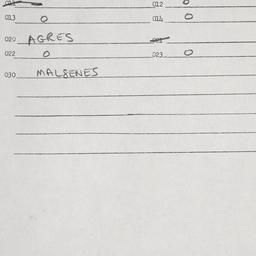 012 0
013 0 014 0
020 AGRES
022 0 023 0
030 MALSENES